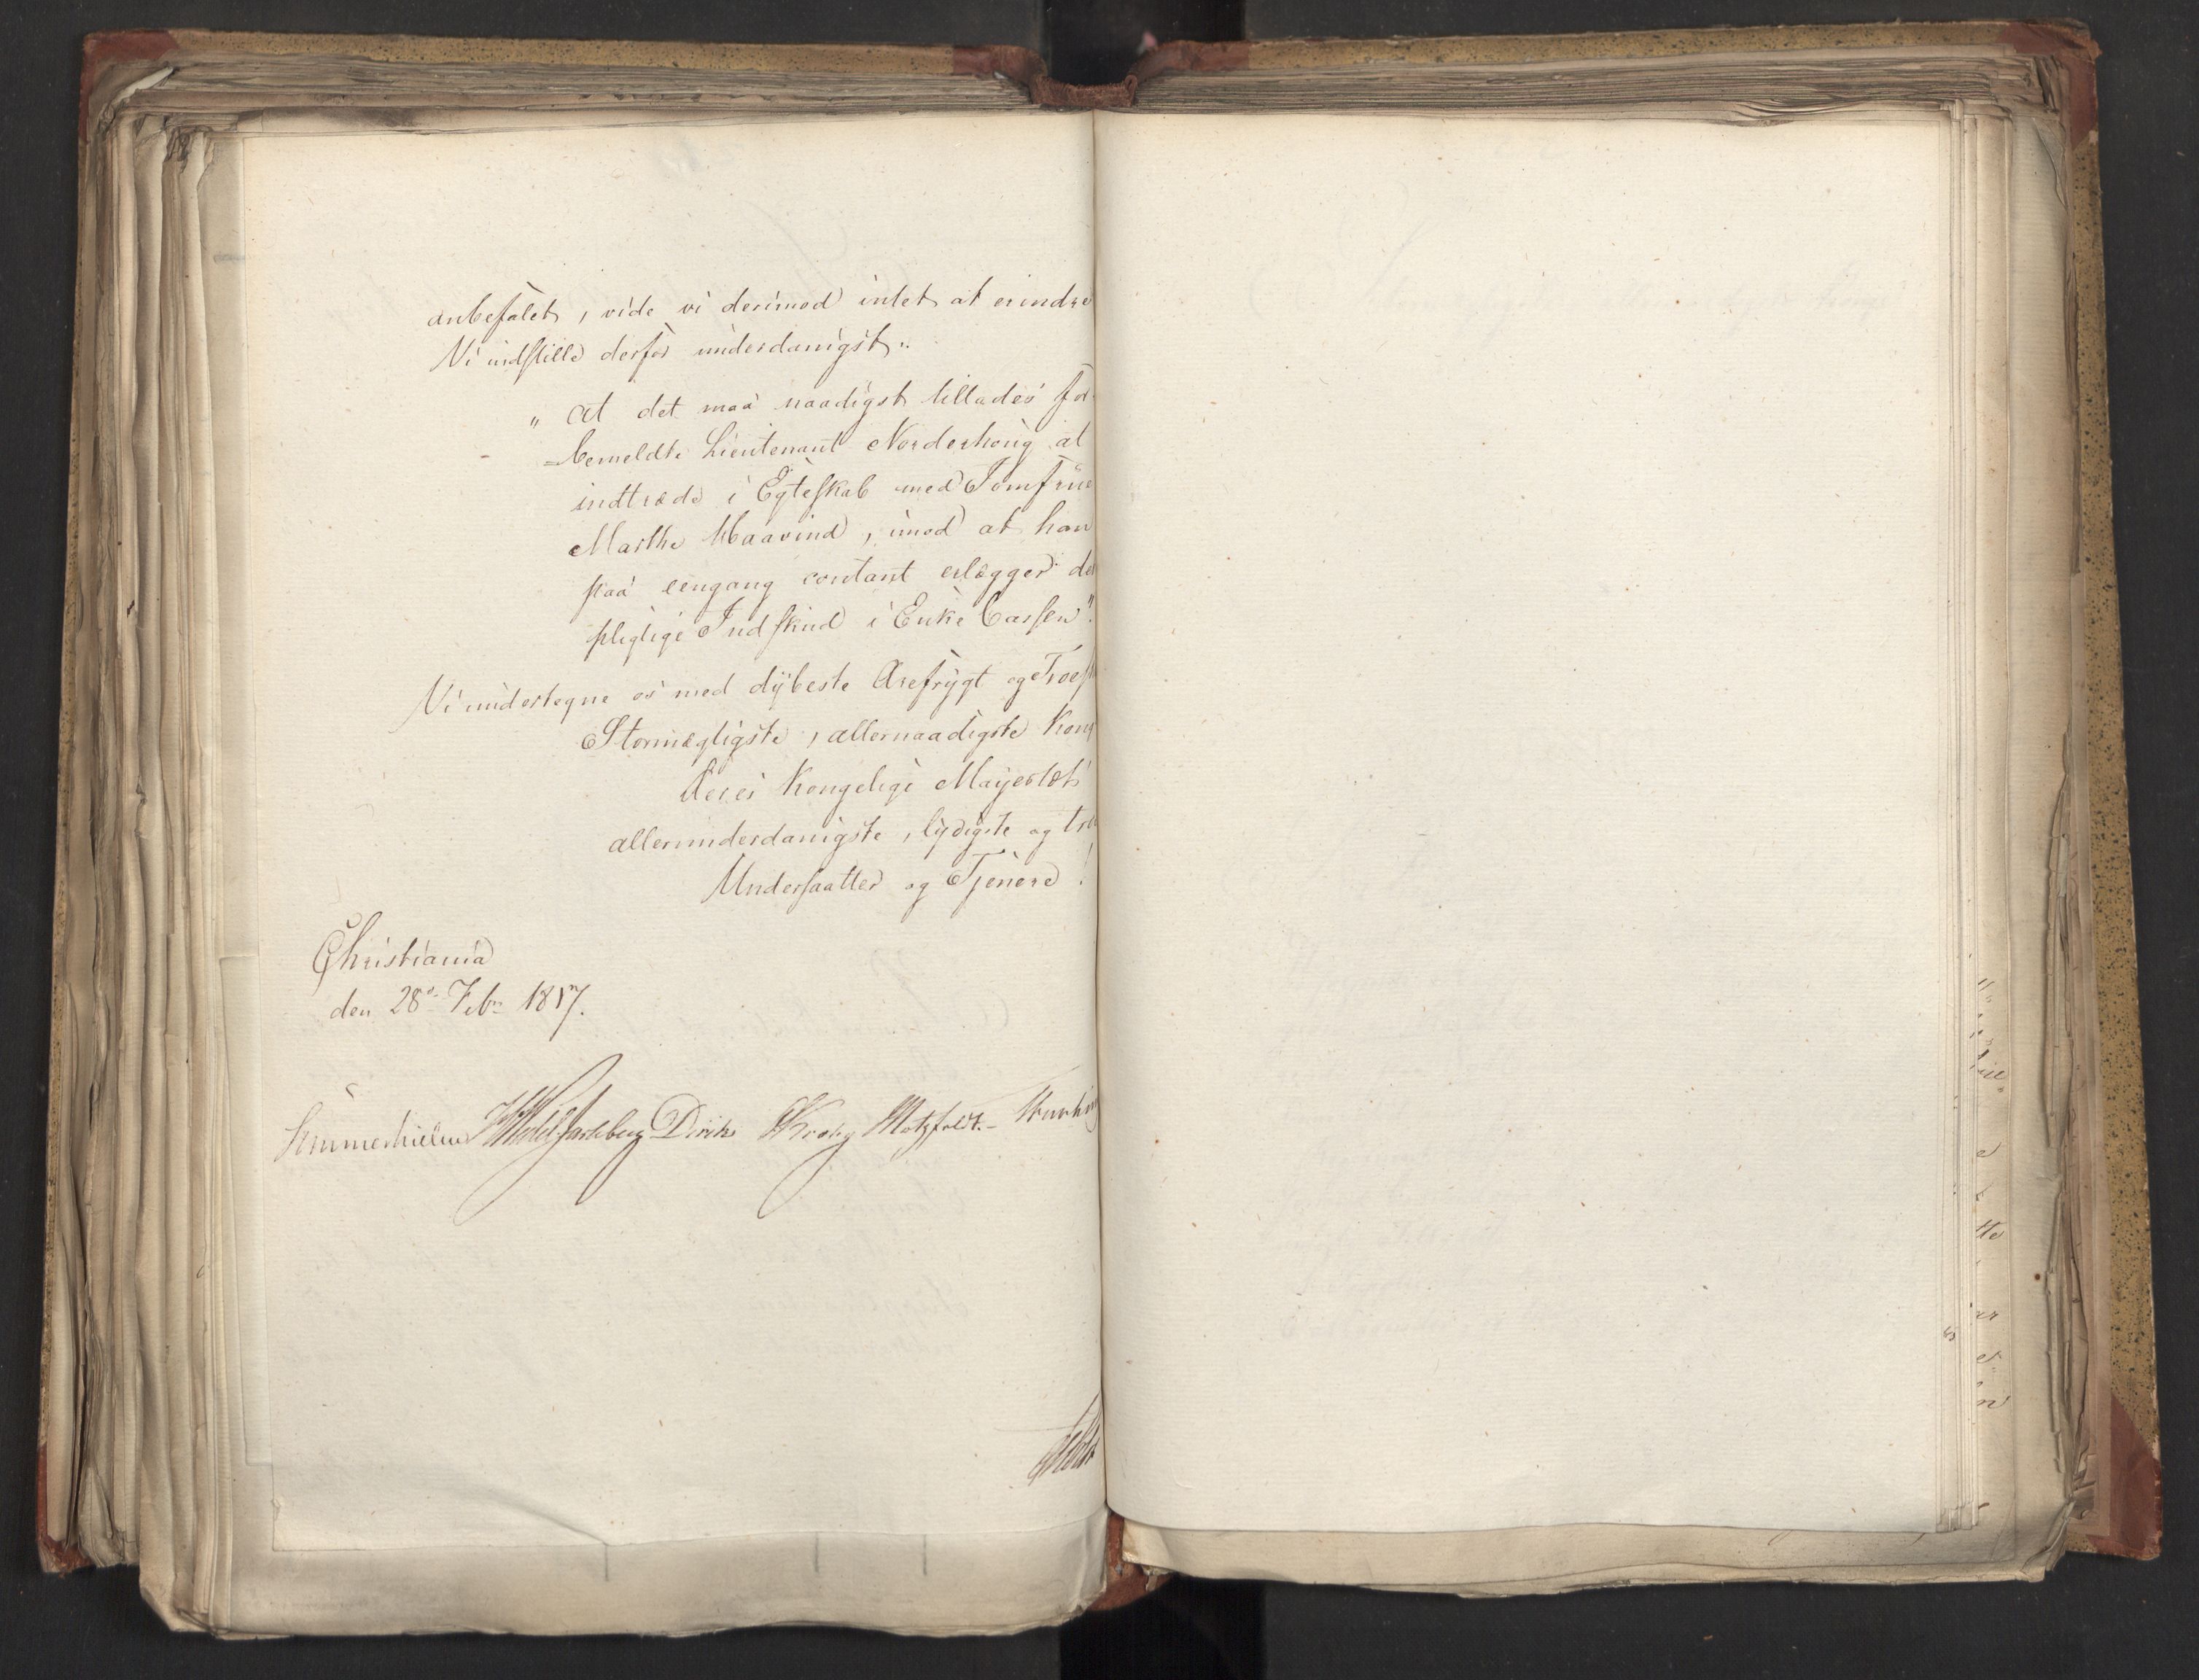 anbefalet, vide vi derimod intet at erindre
Vi indstille derfor underdanigst:
„ at det maa naadigst tillades for-
=bemeldte Lieutenant Norderhoug at
indtræde i Egteskab med Jomfrue
Marthe Maavind, imod at han
paa eengang contant erlægger de
pligtige Indskud i Enke Cassen".
Vi undertegne os med dybeste Ærefrygt og Troesk
Stormægtigste, allernaadigste Kong
Deres Kongelige Mayestæts
allerunderdanigste, lydigste og tro
Undersaatter og Tjenere!
Christiania
den 28de Febr 1817.
Sommerhielm HWedel Jarlsberg Diriks Krohg Motzfeldt
Holst